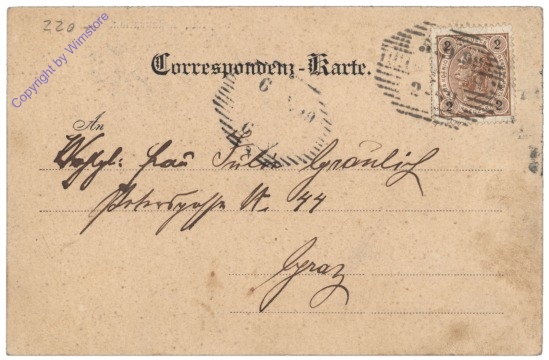 220
Copyright by Wimstore
Correspondenz-Karte.
2 2
2 2
An
Frau Julie Gräulich
Petersgasse N. 44
Graz